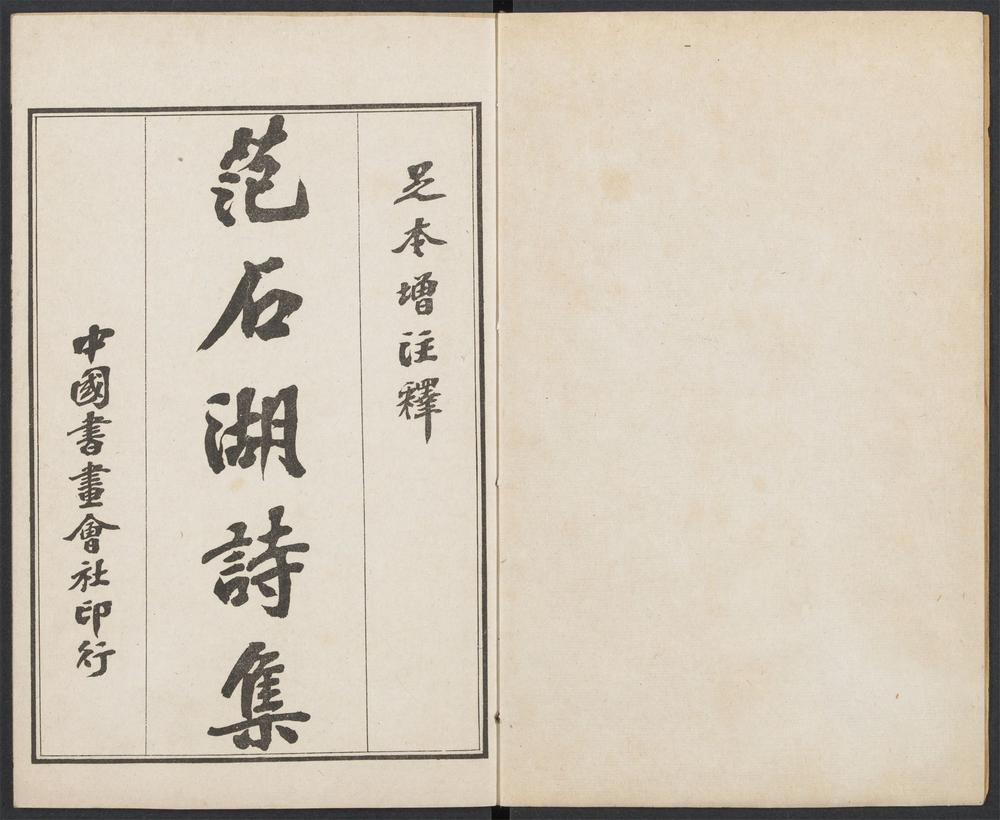 足本增注釋
范石湖詩集
中國書畫會社印行